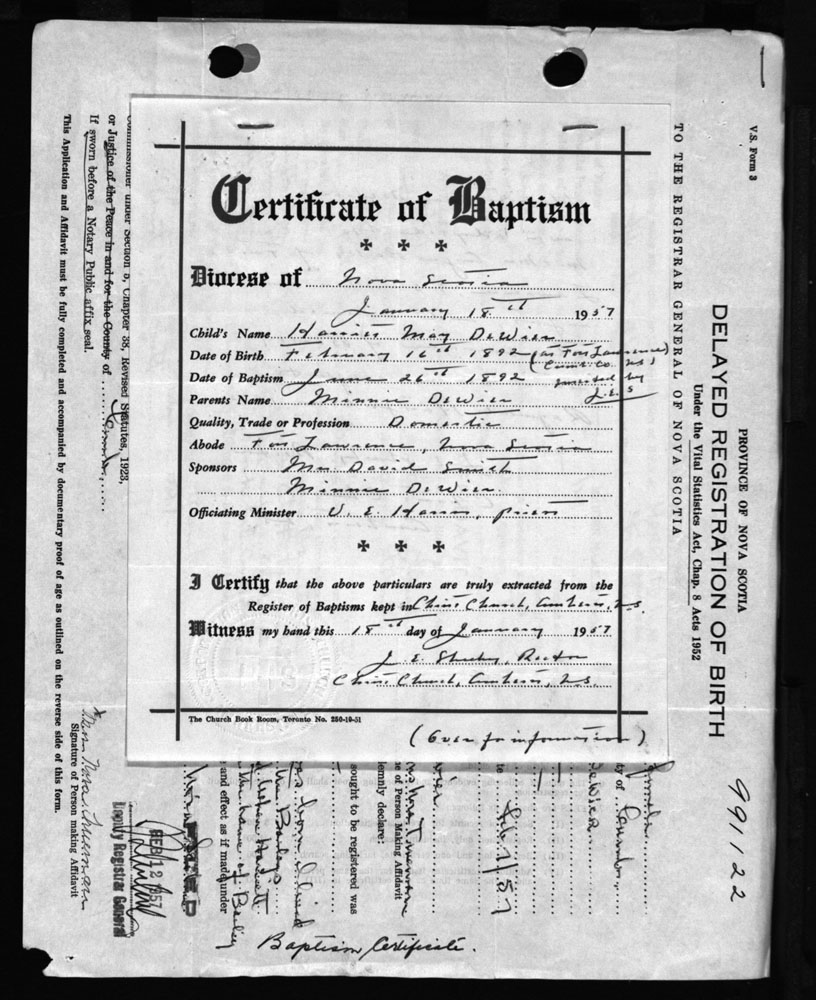 Certificate of Baptism
Diocese of Nova Scotia
January 18th 1957
Child's Name Harriet May DeWier
Date of Birth February 16th 1892 (at Fort Lawrence)
Cumb. Co. N.S.
Date of Baptism June 26th 1892 inserted by
Parents Name Minnie DeWier J.E.S
Quality, Trade or Profession Domestic
Abode Fort Lawrence, Nova Scotia
Sponsors Mrs. David Smith
Minnie DeWier
Officiating Minister V. E. Harris, priest
I Certify that the above particulars are truly extracted from the
Register of Baptisms kept in Christ Church, Amherst, N.S.
Witness my hand this 18th day of January 1957
J. E. Rector
Christ Church, Amherst, N.S.
The Church Book Room, Toronto No. 250-10-51
(Over for information)
V.S. Form 3
PROVINCE OF NOVA SCOTIA
DELAYED REGISTRATION OF BIRTH
Under the Vital Statistics Act, Chap. 8 Acts 1952
TO THE REGISTRAR GENERAL OF NOVA SCOTIA
991122
ty of
DeWier
te Feb 1/57
ne of Person Making Affidavit
lemnly declare:
sought to be registered was
and effect as if made under
name of Bailey
Commissioner under Section 5, Chapter 38, Revised Statutes, 1923,
or Justice of the Peace in and for the County of
If sworn before a Notary Public affix seal.
This Application and Affidavit must be fully completed and accompanied by documentary proof of age as outlined on the reverse side of this form.
Signature of Person making Affidavit
FEB 12 1957
Deputy Registrar General
Baptism Certificate.